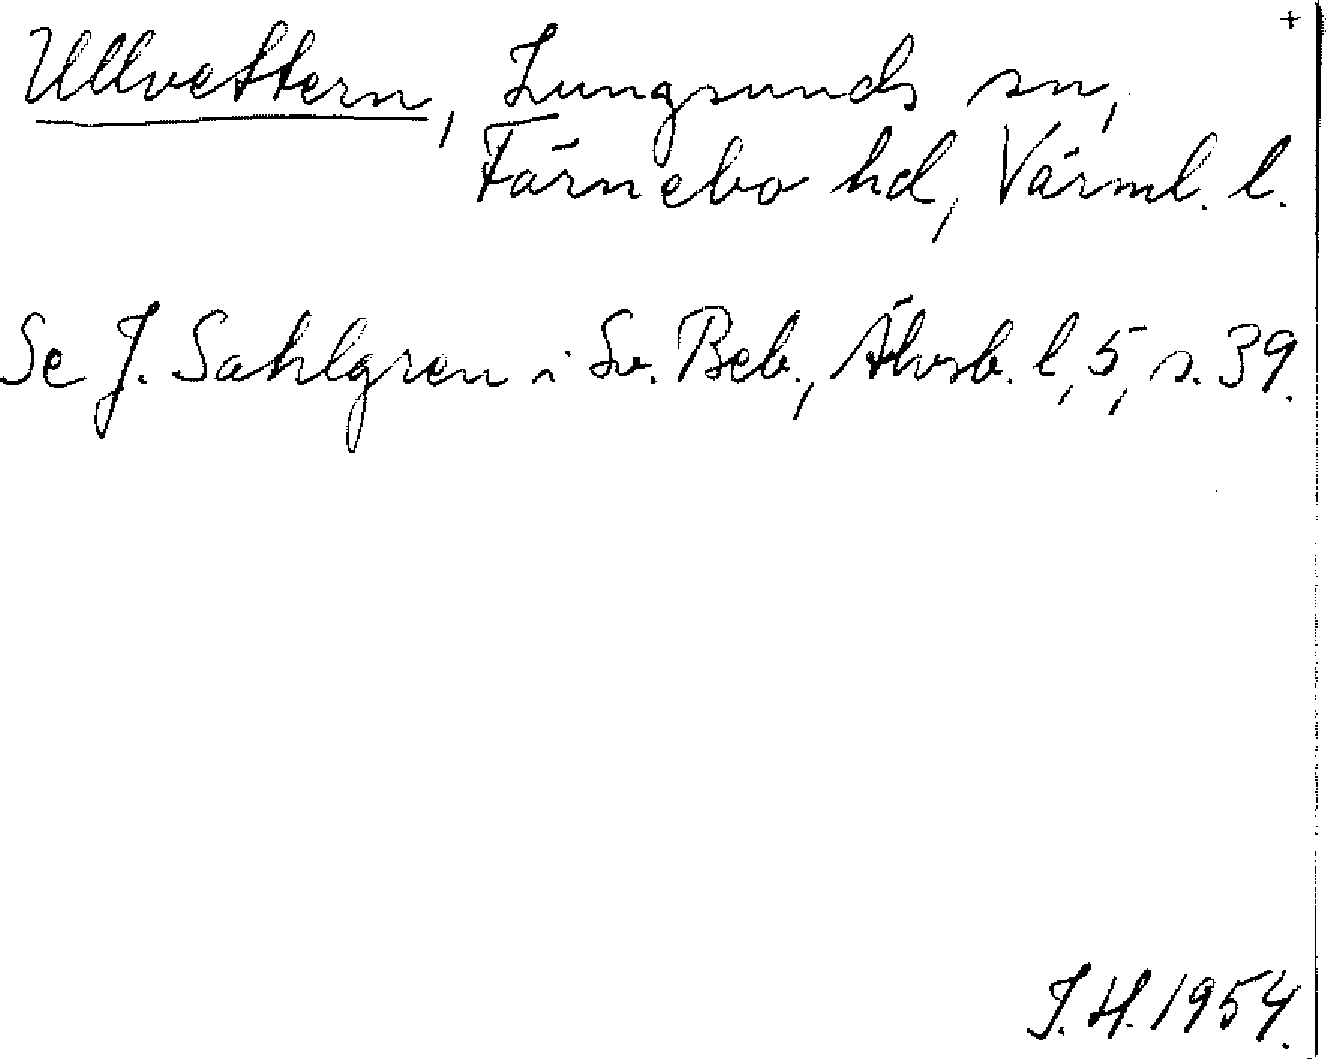 +
Ullvettern, Lungsunds sn,
Färnebo hd, Värml. l.
Se J. Sahlgren i Sv. Beb., Älvsb. l, 5, s. 39.
J. H. 1954.